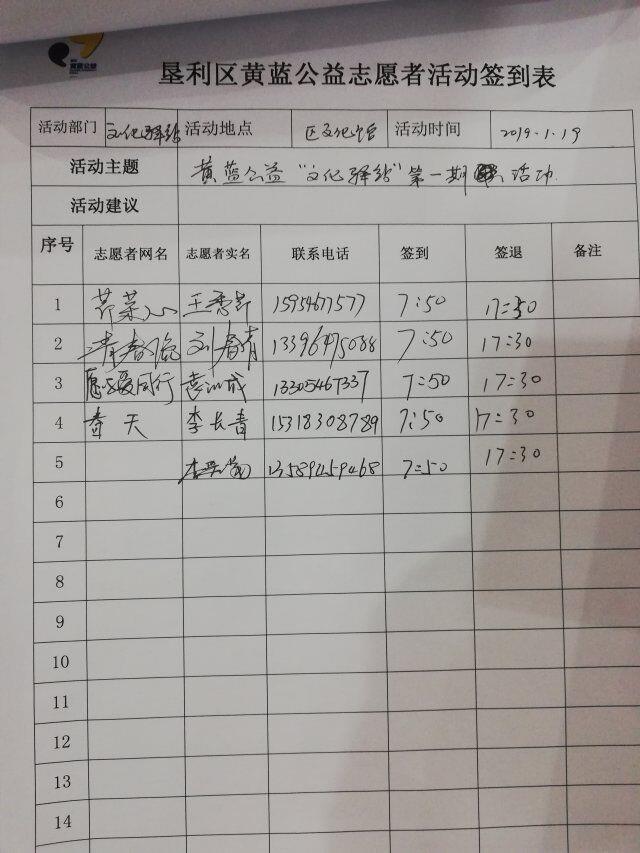 黄蓝公益
垦利区黄蓝公益志愿者活动签到表
活动部门 文化驿站 活动地点 区文化馆 活动时间 2019.1.19
活动主题 黄蓝公益“文化驿站”第一期 活动.
活动建议
序号 志愿者网名 志愿者实名 联系电话 签到 签退 备注
1 芹菜 王秀芹 15954677577 7:50 17:30
2 青春 刘春青 13396475088 7:50 17:30
3 愿与爱同行 13305467337 7:50 17:30
4 春天 李长青 15318308789 7:50 17:30
5 13589459468 7:50 17:30
6
7
8
9
10
11
12
13
14